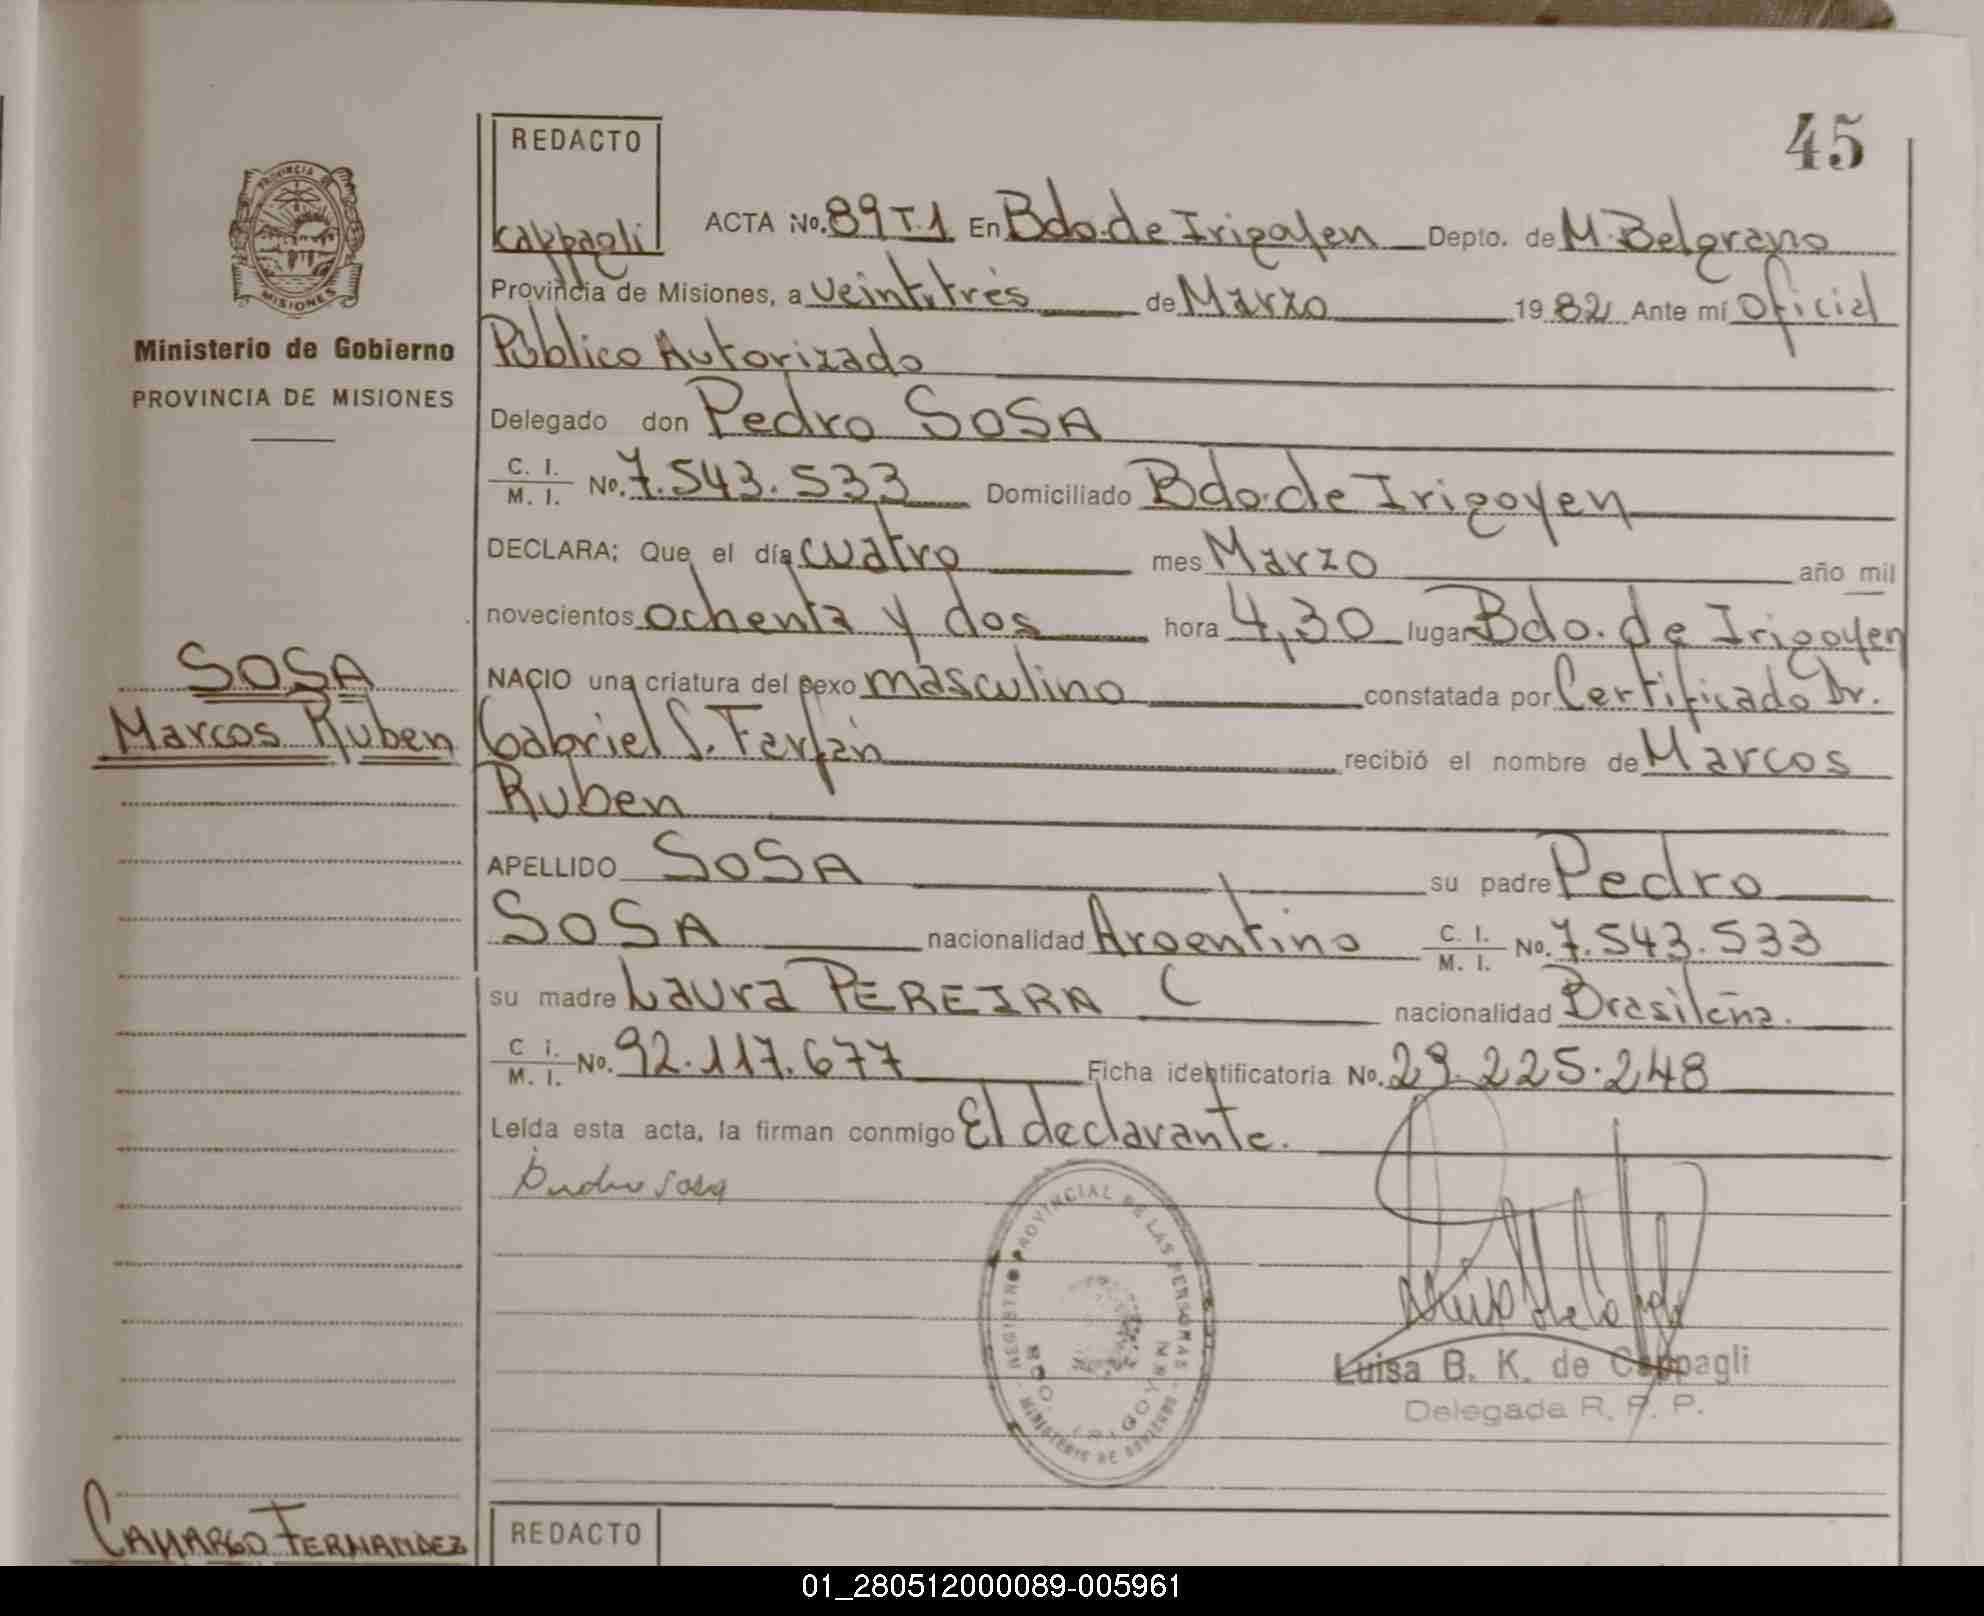 45
REDACTO
Cappagli
ACTA No. 89 T.1 En Bdo. de Irigoyen Depto. de M. Belgrano
Provincia de Misiones, a veintitrés de Marzo 1982 Ante mí Oficial
Público Autorizado
Delegado don Pedro SOSA
C. I. / M. I. No. 7.543.533 Domiciliado Bdo. de Irigoyen
DECLARA; Que el día cuatro mes Marzo año mil
novecientos ochenta y dos hora 4,30 lugar Bdo. de Irigoyen
NACIO una criatura del sexo masculino constatada por Certificado Dr.
Gabriel S. Farfán recibió el nombre de Marcos
Ruben
APELLIDO SOSA su padre Pedro
SOSA nacionalidad Argentino C. I. / M. I. No. 7.543.533
su madre Laura PEREIRA nacionalidad Brasileña.
C i. / M. I. No. 92.117.677 Ficha identificatoria No. 29.225.248
Leída esta acta, la firman conmigo El declarante.
Pedro Sosa
Luisa B. K. de Cappagli
Delegada R. P. P.
REGISTRO PROVINCIAL DE LAS PERSONAS - MINISTERIO DE GOBIERNO
BDO. IRIGOYEN
PROVINCIA DE
MISIONES
Ministerio de Gobierno
PROVINCIA DE MISIONES
SOSA
Marcos Ruben
CAMARGO FERNANDEZ
REDACTO
01_280512000089-005961